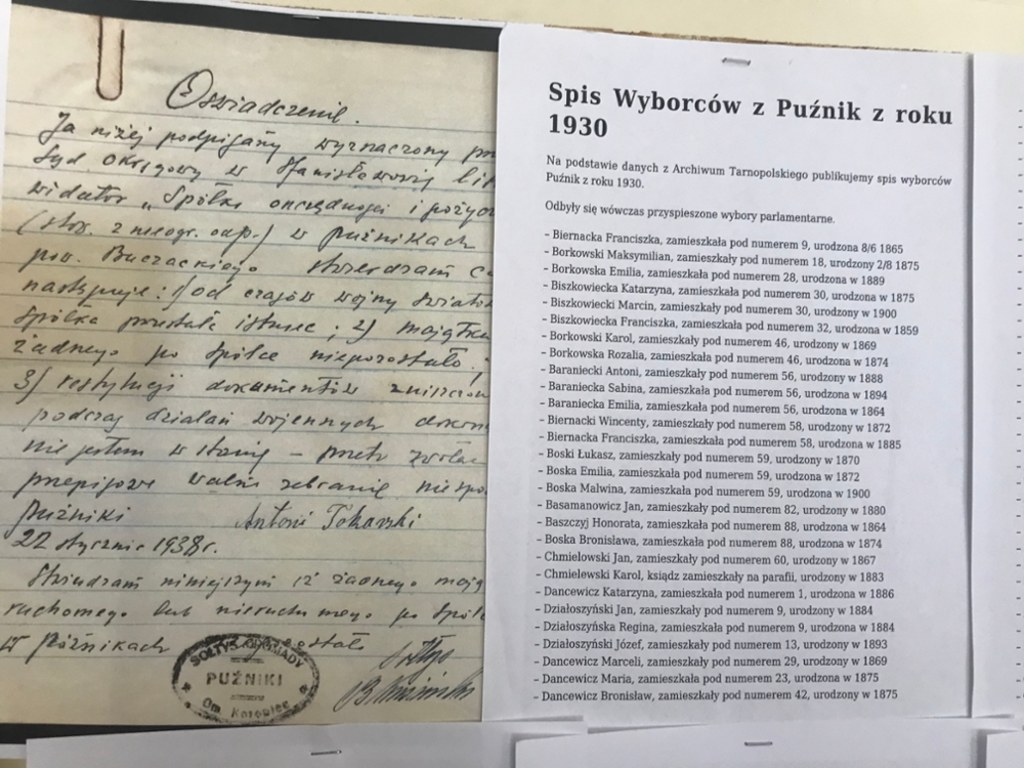 Oświadczenie.
Ja niżej podpisany wyznaczony
Sąd Okręgowy w Stanisławowie
widator „Spółki oszczędności i
(stow. z nieogr. odp.) w Puźnikach
pow. Buczackiego stwierdzam
następuje: 1) od czasów wojny
spółka przestała istnieć; 2)
żadnego po spółce niepozostało;
3) restytucji dokumentów
podczas działań wojennych
nie jestem w stanie – przeto
przepisowe walne zebranie
Puźniki Antoni Tokarski
22 stycznia 1938 r.
Stwierdzam niniejszym iż żadnego
ruchomego lub nieruchomego po
w Puźnikach
SOŁTYS GROMADY
PUŹNIKI
Gm. Koropiec
Spis Wyborców z Puźnik z roku
1930
Na podstawie danych z Archiwum Tarnopolskiego publikujemy spis wyborców
Puźnik z roku 1930.
Odbyły się wówczas przyspieszone wybory parlamentarne.
– Biernacka Franciszka, zamieszkała pod numerem 9, urodzona 8/6 1865
– Borkowski Maksymilian, zamieszkały pod numerem 18, urodzony 2/8 1875
– Borkowska Emilia, zamieszkała pod numerem 28, urodzona w 1889
– Biszkowiecka Katarzyna, zamieszkała pod numerem 30, urodzona w 1875
– Biszkowiecki Marcin, zamieszkały pod numerem 30, urodzony w 1900
– Biszkowiecka Franciszka, zamieszkała pod numerem 32, urodzona w 1859
– Borkowski Karol, zamieszkały pod numerem 46, urodzony w 1869
– Borkowska Rozalia, zamieszkała pod numerem 46, urodzona w 1874
– Baraniecki Antoni, zamieszkały pod numerem 56, urodzony w 1888
– Baraniecka Sabina, zamieszkała pod numerem 56, urodzona w 1894
– Baraniecka Emilia, zamieszkała pod numerem 56, urodzona w 1864
– Biernacki Wincenty, zamieszkały pod numerem 58, urodzony w 1872
– Biernacka Franciszka, zamieszkała pod numerem 58, urodzona w 1885
– Boski Łukasz, zamieszkały pod numerem 59, urodzony w 1870
– Boska Emilia, zamieszkała pod numerem 59, urodzona w 1872
– Boska Malwina, zamieszkała pod numerem 59, urodzona w 1900
– Basamanowicz Jan, zamieszkały pod numerem 82, urodzony w 1880
– Baszczyj Honorata, zamieszkała pod numerem 88, urodzona w 1864
– Boska Bronisława, zamieszkała pod numerem 88, urodzona w 1874
– Chmielowski Jan, zamieszkały pod numerem 60, urodzony w 1867
– Chmielewski Karol, ksiądz zamieszkały na parafii, urodzony w 1883
– Dancewicz Katarzyna, zamieszkała pod numerem 1, urodzona w 1886
– Działoszyński Jan, zamieszkały pod numerem 9, urodzony w 1884
– Działoszyńska Regina, zamieszkała pod numerem 9, urodzona w 1884
– Działoszyński Józef, zamieszkały pod numerem 13, urodzony w 1893
– Dancewicz Marceli, zamieszkały pod numerem 29, urodzony w 1869
– Dancewicz Maria, zamieszkała pod numerem 23, urodzona w 1875
– Dancewicz Bronisław, zamieszkały pod numerem 42, urodzony w 1875